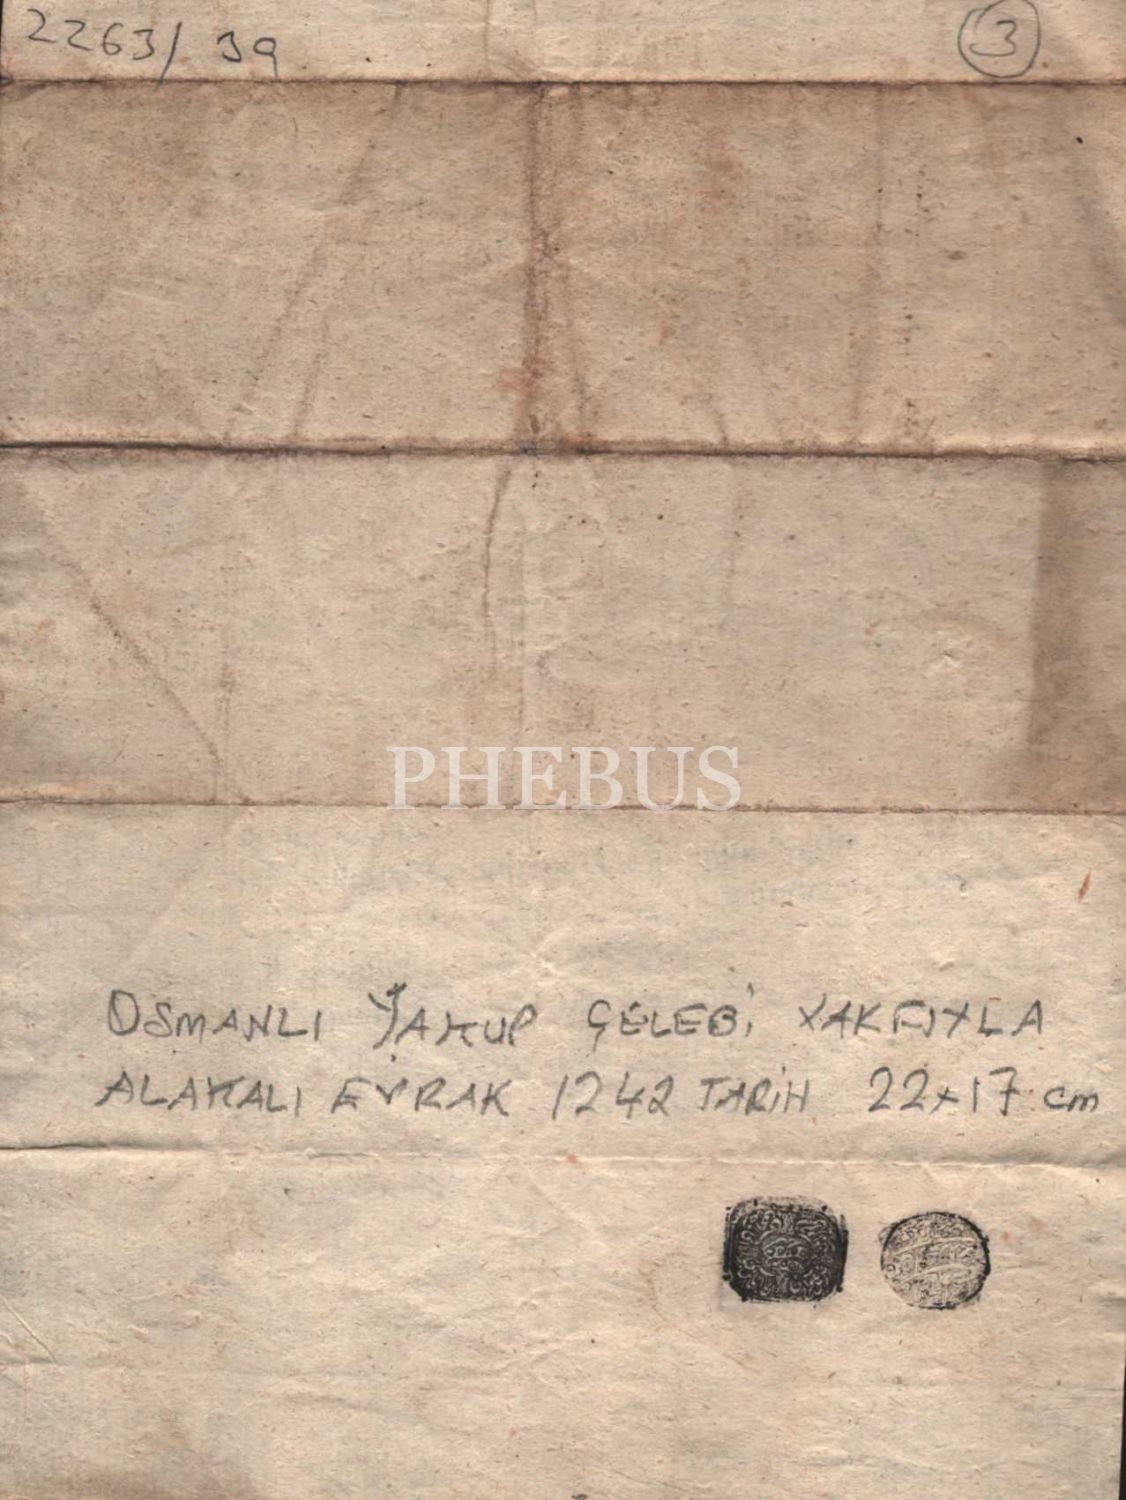 2263/39
3
PHEBUS
OSMANLI YAKUP ÇELEBİ VAKFIYLA
ALAKALI EVRAK 1242 TARİH 22x17 cm